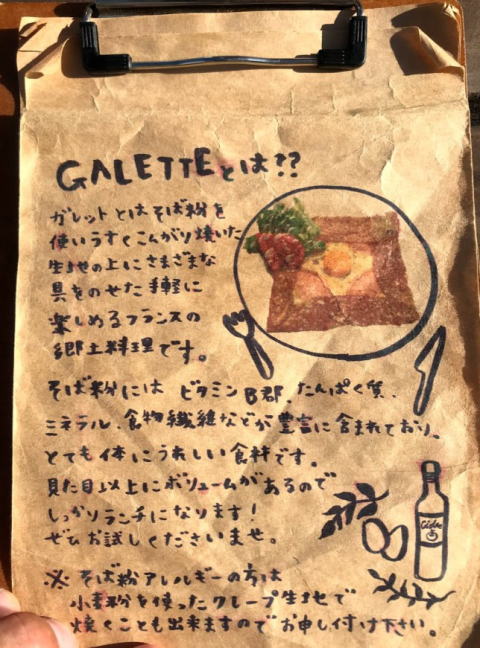 GALETTEとは!?
ガレットとはそば粉を
使いうすくこんがり焼いた
生地の上にさまざまな
具をのせた手軽に
楽しめるフランスの
郷土料理です。
そば粉には ビタミンB郡、たんぱく質、
ミネラル、食物繊維などが豊富に含まれており。
とても体にうれしい食材です。
見た目以上にボリュームがあるので
しっかりランチになります!
ぜひお試しくださいませ。
Cidre
※ そば粉アレルギーの方は
小麦粉を使ったクレープ生地で
焼くことも出来ますのでお申し付け下さい。